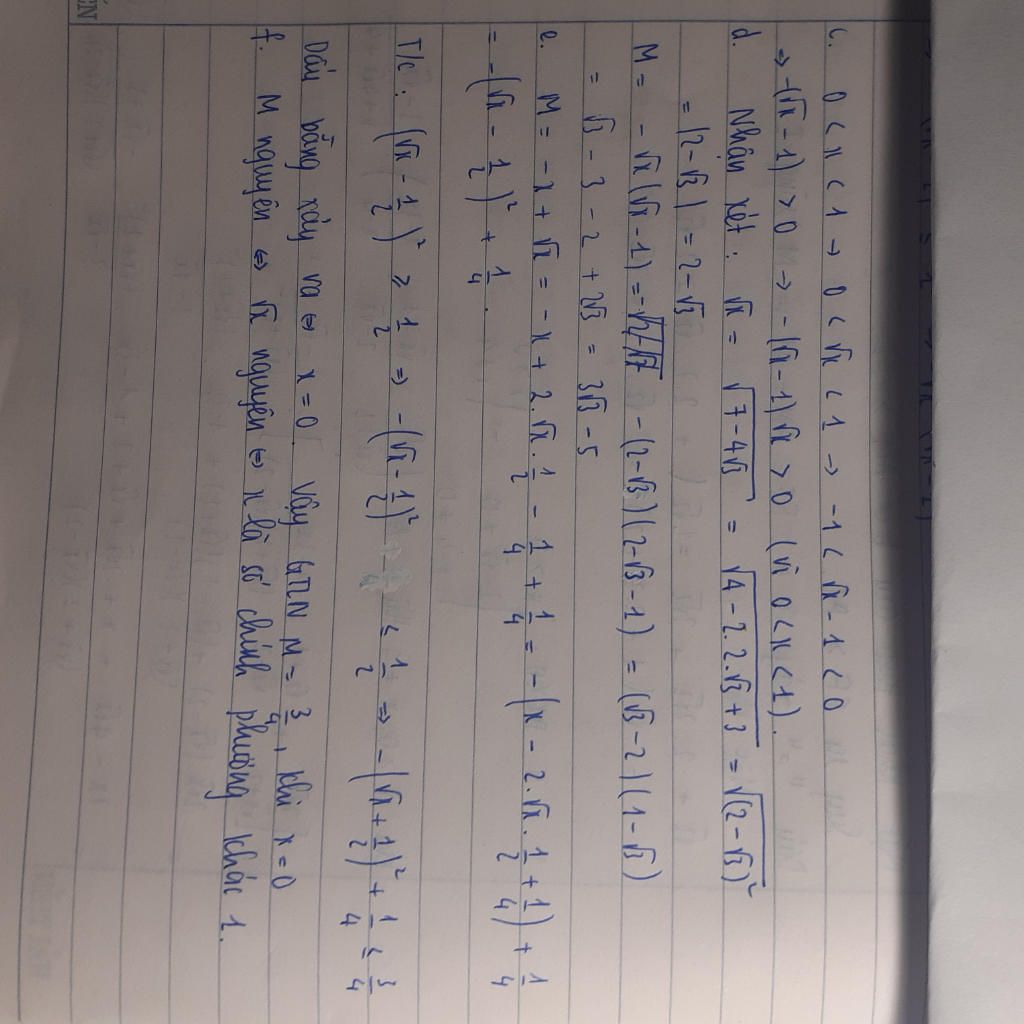 c. 0 < x < 1 → 0 < √x < 1 → -1 < √x - 1 < 0
⇒ -(√x - 1) > 0 → -(√x - 1)√x > 0 (vì 0 < x < 1).
d. Nhận xét: √x = √(7 - 4√3) = √(4 - 2.2.√3 + 3) = √((2 - √3)²)
= |2 - √3| = 2 - √3
M = - √x(√x - 1) = - (2 - √3)(2 - √3 - 1) = (√3 - 2)(1 - √3)
= √3 - 3 - 2 + 2√3 = 3√3 - 5
e. M = - x + √x = - x + 2.√x.1/2 - 1/4 + 1/4 = - (x - 2.√x.1/2 + 1/4) + 1/4
= -(√x - 1/2)² + 1/4.
T/c: (√x - 1/2)² ≥ 1/2 ⇒ -(√x - 1/2)² ≤ 1/2 ⇒ - (√x + 1/2)² + 1/4 ≤ 3/4
Dấu bằng xảy ra ⇔ x = 0. Vậy GTLN M = 3/4, khi x = 0
f. M nguyên ⇔ √x nguyên ⇔ x là số chính phương khác 1.